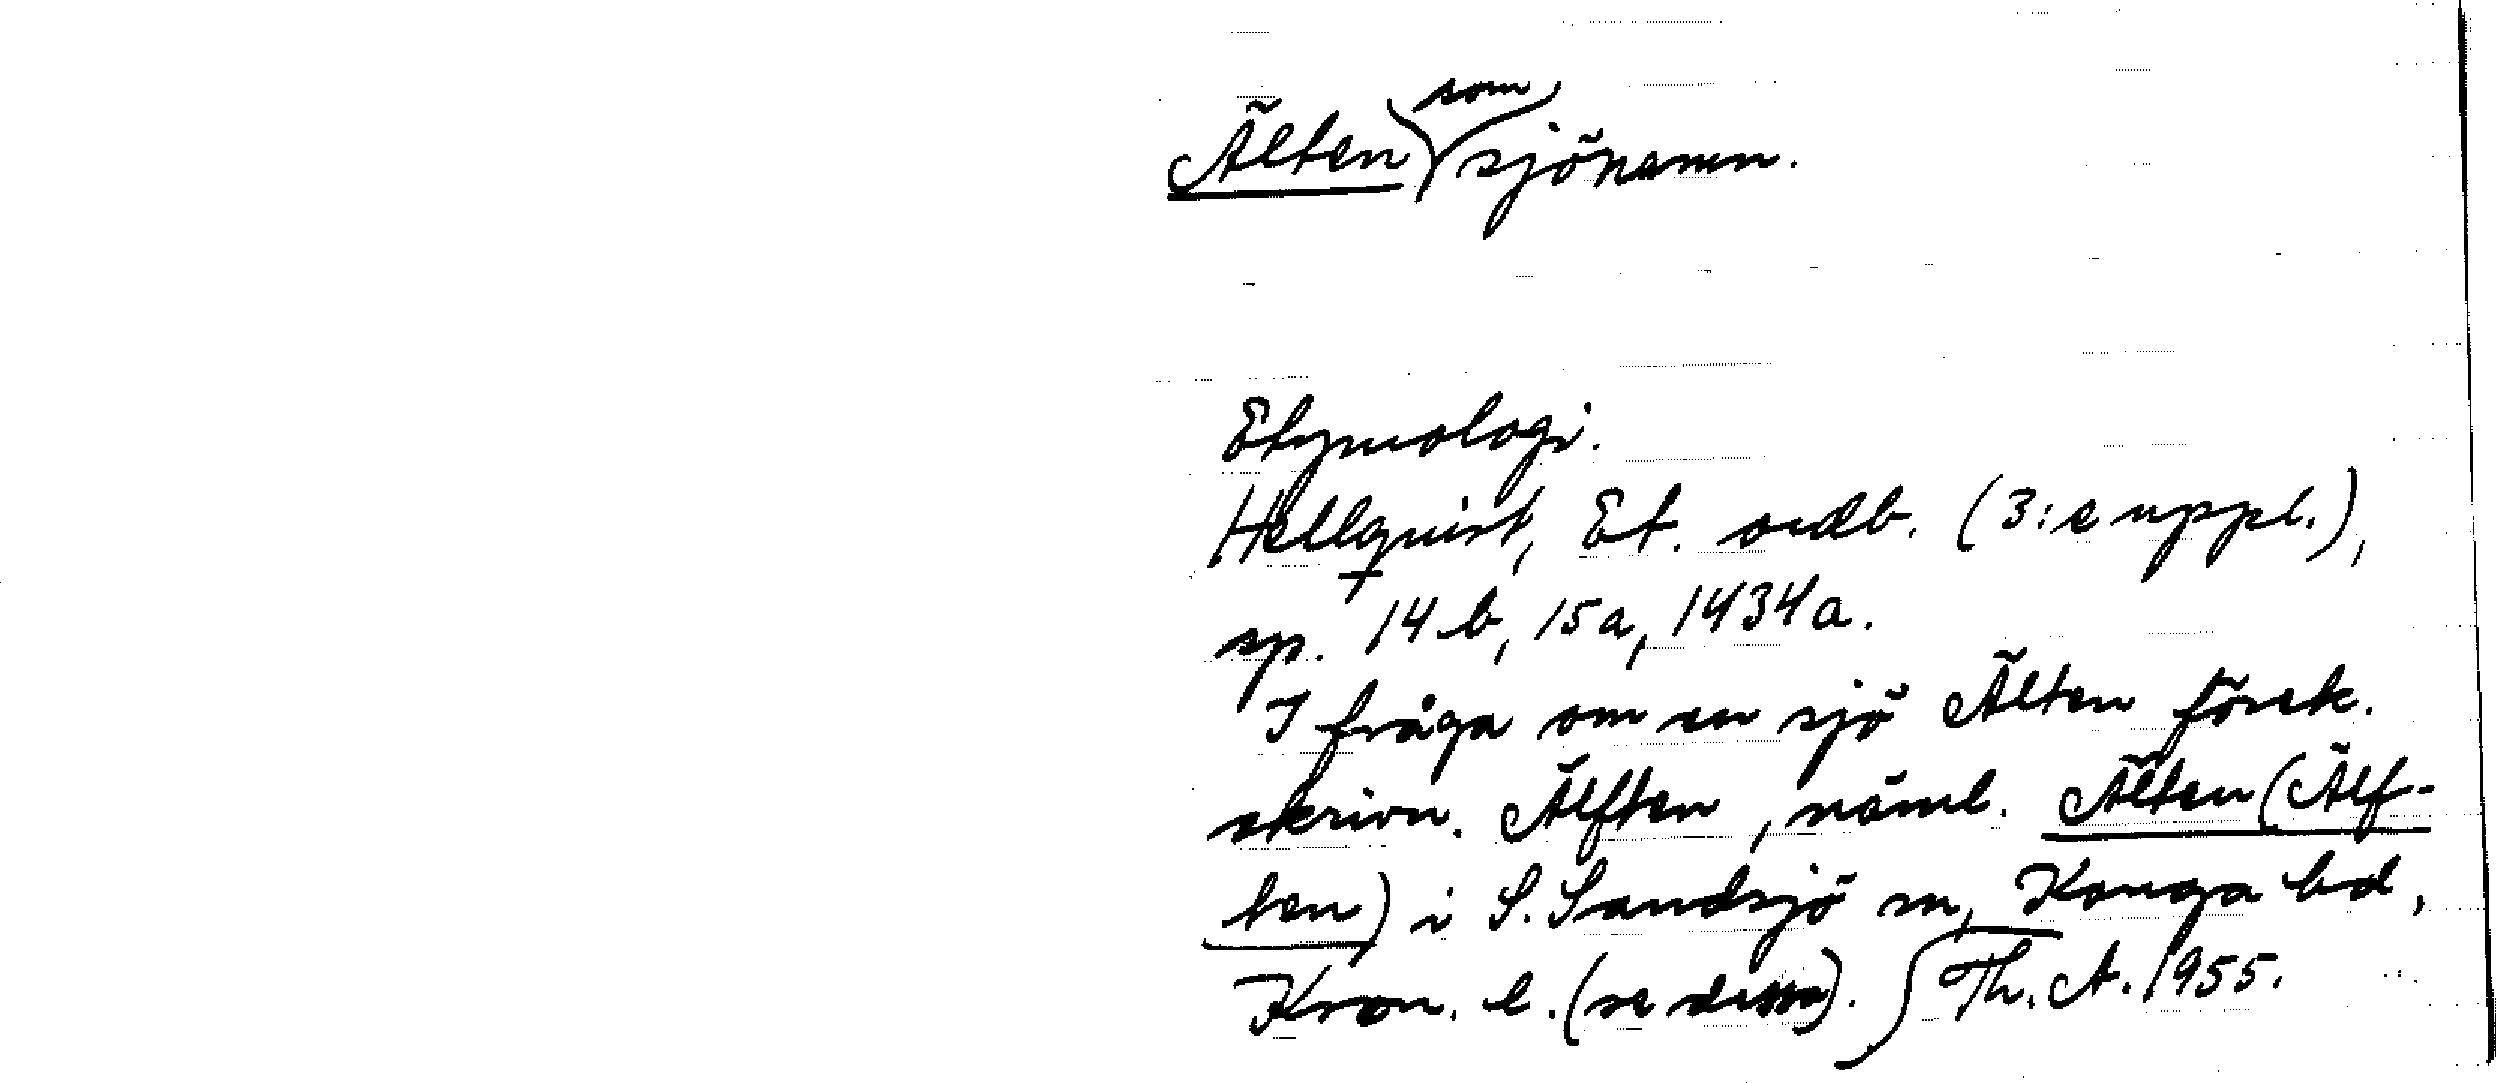 Älten som sjönamn.
Etymologi.
Hellquist, Et. ordb. (3:e uppl.),
sp. 14 b, 15a, 1434a.
I fråga om en sjö Älten förek.
skrivn. Älften, näml. Älten (Älf-
ten) i S. Sandsjö sn, Konga hd,
Kron. l. (se detta). Th. A. 1955.